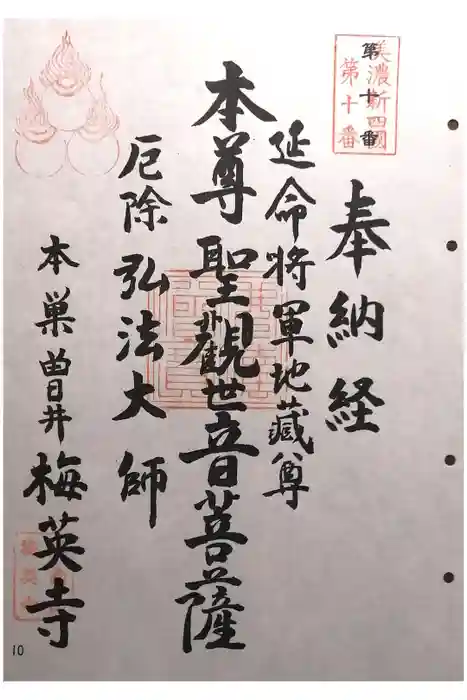 美濃新四國
第十番
第十番
奉納経
延命将軍地藏尊
本尊聖觀世音菩薩
厄除弘法大師
本巣曽井梅英寺
10